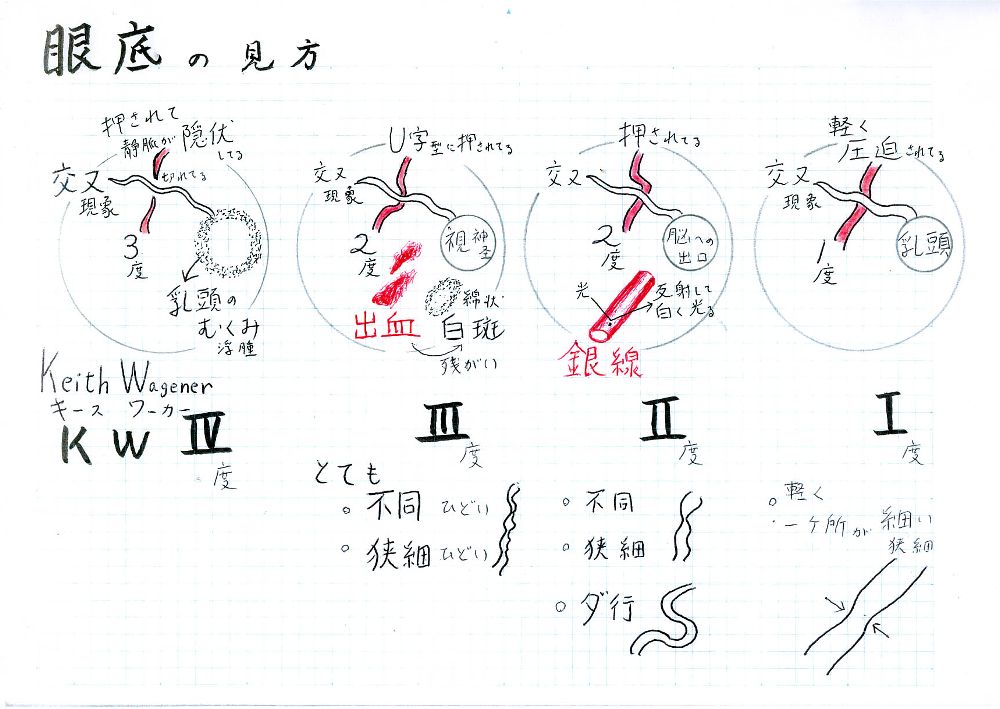 眼底の見方
押されて
静脈が隠伏
してる
交叉
現象
切れてる
3度
乳頭の
むくみ
浮腫
Keith Wagener
キース ワーカー
KW Ⅳ度
U字型に押されてる
交叉
現象
2度
視神圣
出血
綿状
白斑
残がい
Ⅲ度
とても
不同 ひどい
狭細 ひどい
押されてる
交叉
2度
脳への
出口
光
反射して
白く光る
銀線
Ⅱ度
不同
狭細
ダ行
軽く
圧迫されてる
交叉
現象
1度
乳頭
Ⅰ度
軽く
一ヶ所が細い
狭細